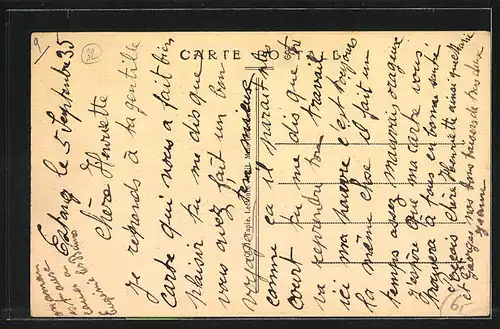 CARTE POSTALE
Estang le 5 Septembre 35
Chère Henriette
Je réponds à ta gentille
carte qui nous a fait bien
plaisir tu me dis que
vous avez fait un bon
voyage
comme ça il parait plus
court tu me dis que tu
va reprendre ton travail
ici ma pauvre c'est toujours
la même chose il fait un
temps assez mauvais
j'espère que ma carte vous
trouvera à tous en bonne santé
chère Henriette ainsi que
et Georges nos bons baisers de tous deux
maman
30
6,-